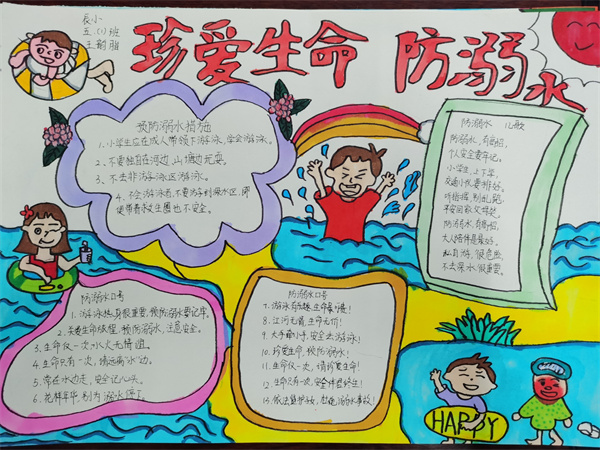 辰小
五.(1)班
珍爱生命 防溺水
预防溺水措施
1.小学生应在成人带领下游泳,学会游泳。
2.不要独自在河边、山塘边玩耍。
3.不去非游泳区游泳。
4.不会游泳者,不要游到深水区,即
使带着救生圈也不安全。
防溺水 儿歌
防溺水,有高招,
个人安全要牢记。
小学生,上下学,
平安回家父母笑。
防溺水,有高招,
大人陪伴是最好。
私自游,很危险,
不去深水很重要。
防溺水口号
1.游泳热身很重要,预防溺水要记牢。
2.关爱生命旅程,预防溺水,注意安全。
3.生命仅一次,水火无情谊。
4.生命只有一次,请远离"水"边。
5.常在水边走,安全记心头。
6.花样年华,别为溺水凋了。
防溺水口号
7.游泳有乐趣,生命最可贵!
8.江河无情,生命无价!
9.大手牵小手,安全去游泳!
10.珍爱生命,预防溺水!
11.生命仅一次,请珍爱生命!
12.生命只有一次,安全伴随终生!
13.依法监护子女,杜绝溺水事故!
HAPPY